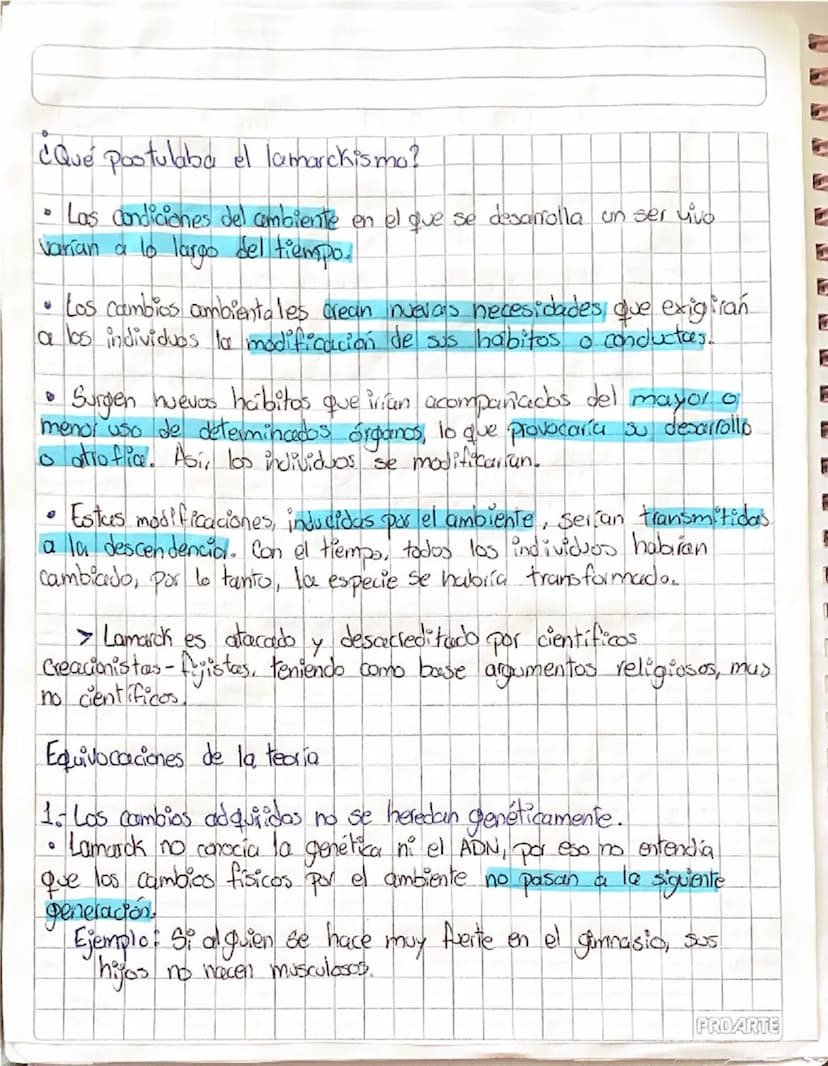 ¿Qué postulaba el lamarckismo?
• Las condiciones del ambiente en el que se desarrolla un ser vivo
varían a lo largo del tiempo.
• Los cambios ambientales crean nuevas necesidades, que exigirán
a los individuos la modificación de sus hábitos o conductas.
• Surgen nuevos hábitos que irían acompañados del mayor o
menor uso de determinados órganos, lo que provocaría su desarrollo
o atrofia. Así, los individuos se modificarían.
• Estas modificaciones, inducidas por el ambiente, serían transmitidas
a la descendencia. Con el tiempo, todos los individuos habrían
cambiado, por lo tanto, la especie se habría transformado.
> Lamarck es atacado y desacreditado por científicos
creacionistas-fijistas, teniendo como base argumentos religiosos, mas
no científicos.
Equivocaciones de la teoría
1.- Los cambios adquiridos no se heredan genéticamente.
• Lamarck no conocía la genética ni el ADN, por eso no entendía
que los cambios físicos por el ambiente no pasan a la siguiente
generación.
Ejemplo: Si alguien se hace muy fuerte en el gimnasio, sus
hijos no nacen musculosos.
PROARTE